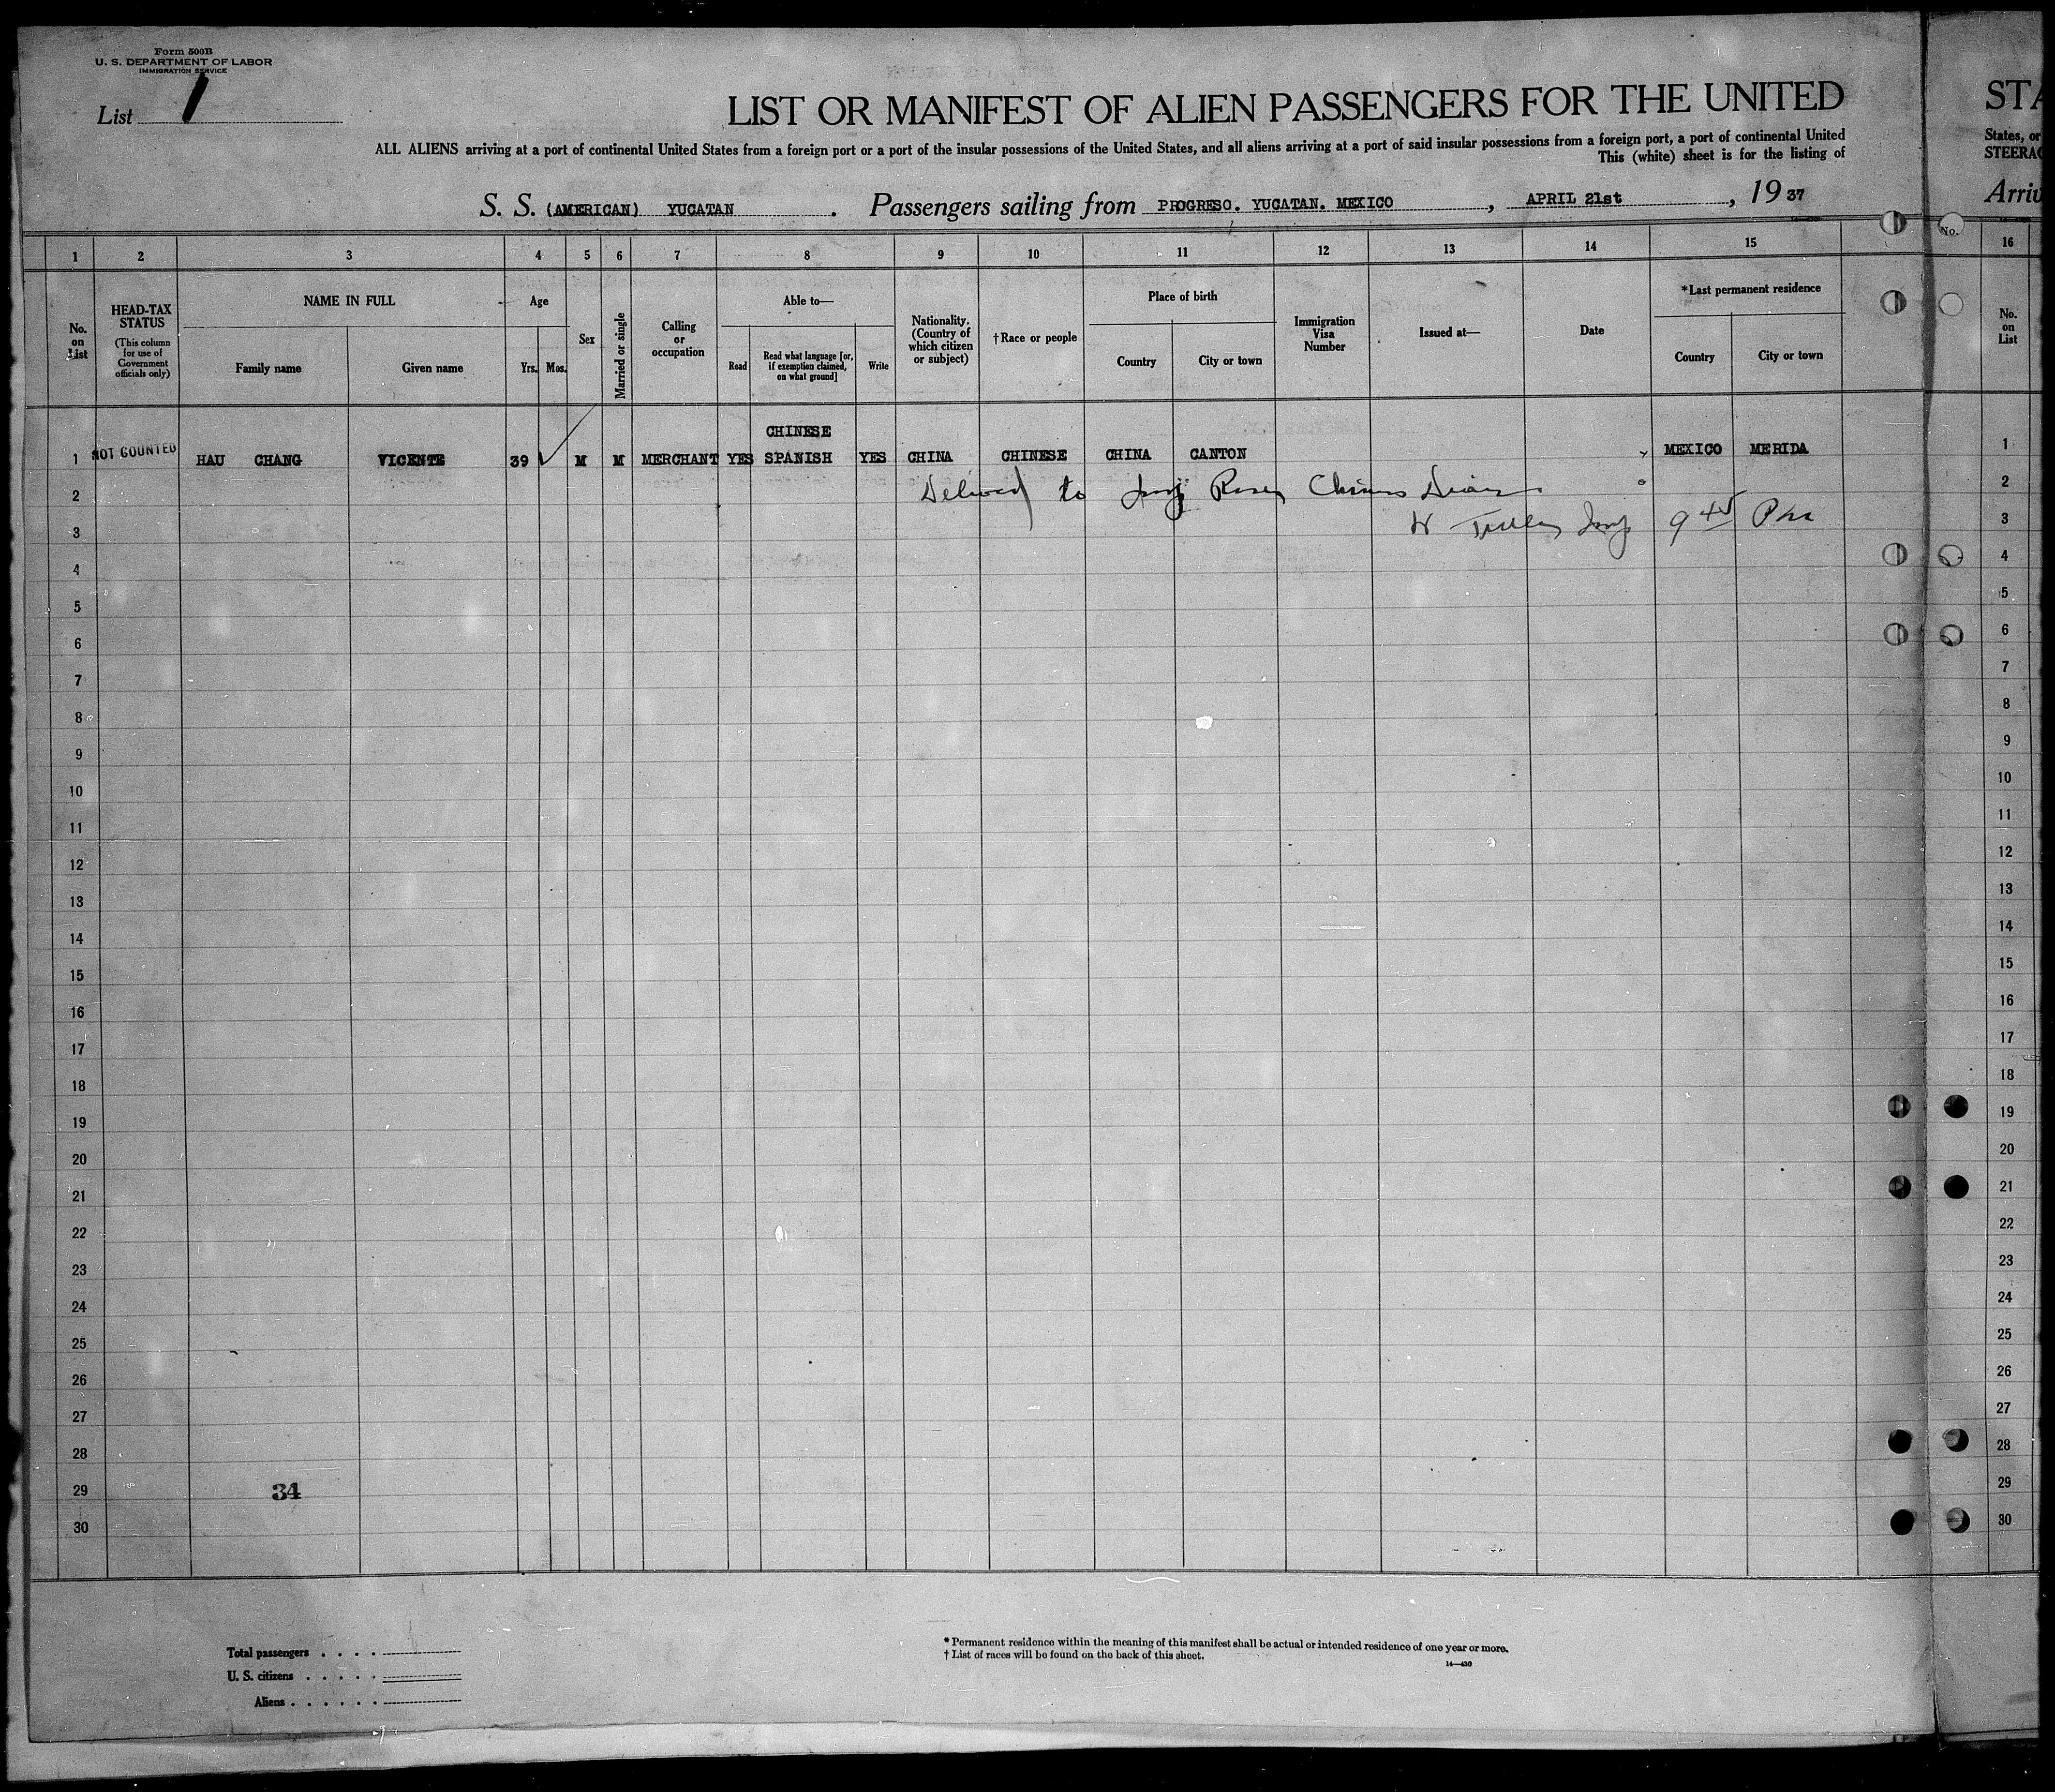 Form 500B
U. S. DEPARTMENT OF LABOR
IMMIGRATION SERVICE
List 1
LIST OR MANIFEST OF ALIEN PASSENGERS FOR THE UNITED
ALL ALIENS arriving at a port of continental United States from a foreign port or a port of the insular possessions of the United States, and all aliens arriving at a port of said insular possessions from a foreign port, a port of continental United
This (white) sheet is for the listing of
S. S. (AMERICAN) YUCATAN . Passengers sailing from PROGRESO. YUCATAN. MEXICO , APRIL 21st , 19 37
STA
States, or
STEERAG
Arriv
No.
1 2 3 4 5 6 7 8 9 10 11 12 13 14 15 16
No. on List
HEAD-TAX STATUS
(This column for use of Government officials only)
NAME IN FULL
Family name Given name
Age
Yrs. Mos.
Sex
Married or single
Calling or occupation
Able to—
Read
Read what language [or, if exemption claimed, on what ground]
Write
Nationality. (Country of which citizen or subject)
†Race or people
Place of birth
Country City or town
Immigration Visa Number
Issued at—
Date
*Last permanent residence
Country City or town
No. on List
1 NOT COUNTED HAU CHANG VICENTE 39 M M MERCHANT YES CHINESE SPANISH YES CHINA CHINESE CHINA CANTON MEXICO MERIDA 1
2 to 2
3 9 45 Pm 3
4 4
5 5
6 6
7 7
8 8
9 9
10 10
11 11
12 12
13 13
14 14
15 15
16 16
17 17
18 18
19 19
20 20
21 21
22 22
23 23
24 24
25 25
26 26
27 27
28 28
29 34 29
30 30
Total passengers . . . .
U. S. citizens . . . . .
Aliens . . . . . .
* Permanent residence within the meaning of this manifest shall be actual or intended residence of one year or more.
† List of races will be found on the back of this sheet.
14—430